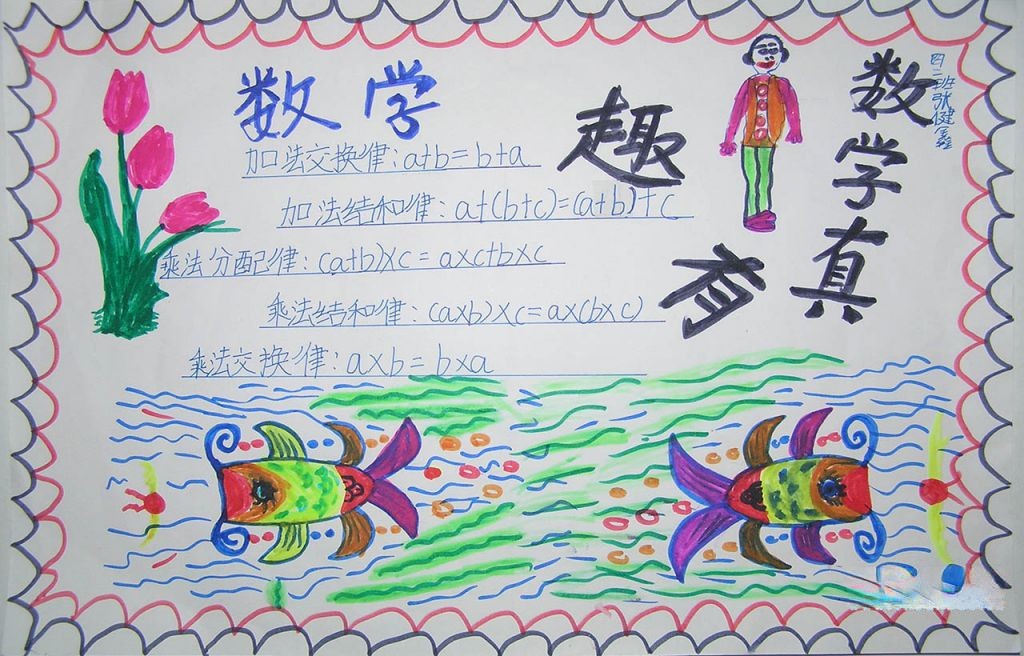 数学
加法交换律:a+b=b+a
加法结和律:a+(b+c)=(a+b)+c
乘法分配律:(a+b)×c=a×c+b×c
乘法结和律:(a×b)×c=a×(b×c)
乘法交换律:a×b=b×a
数学真
有趣
四二班张健鑫